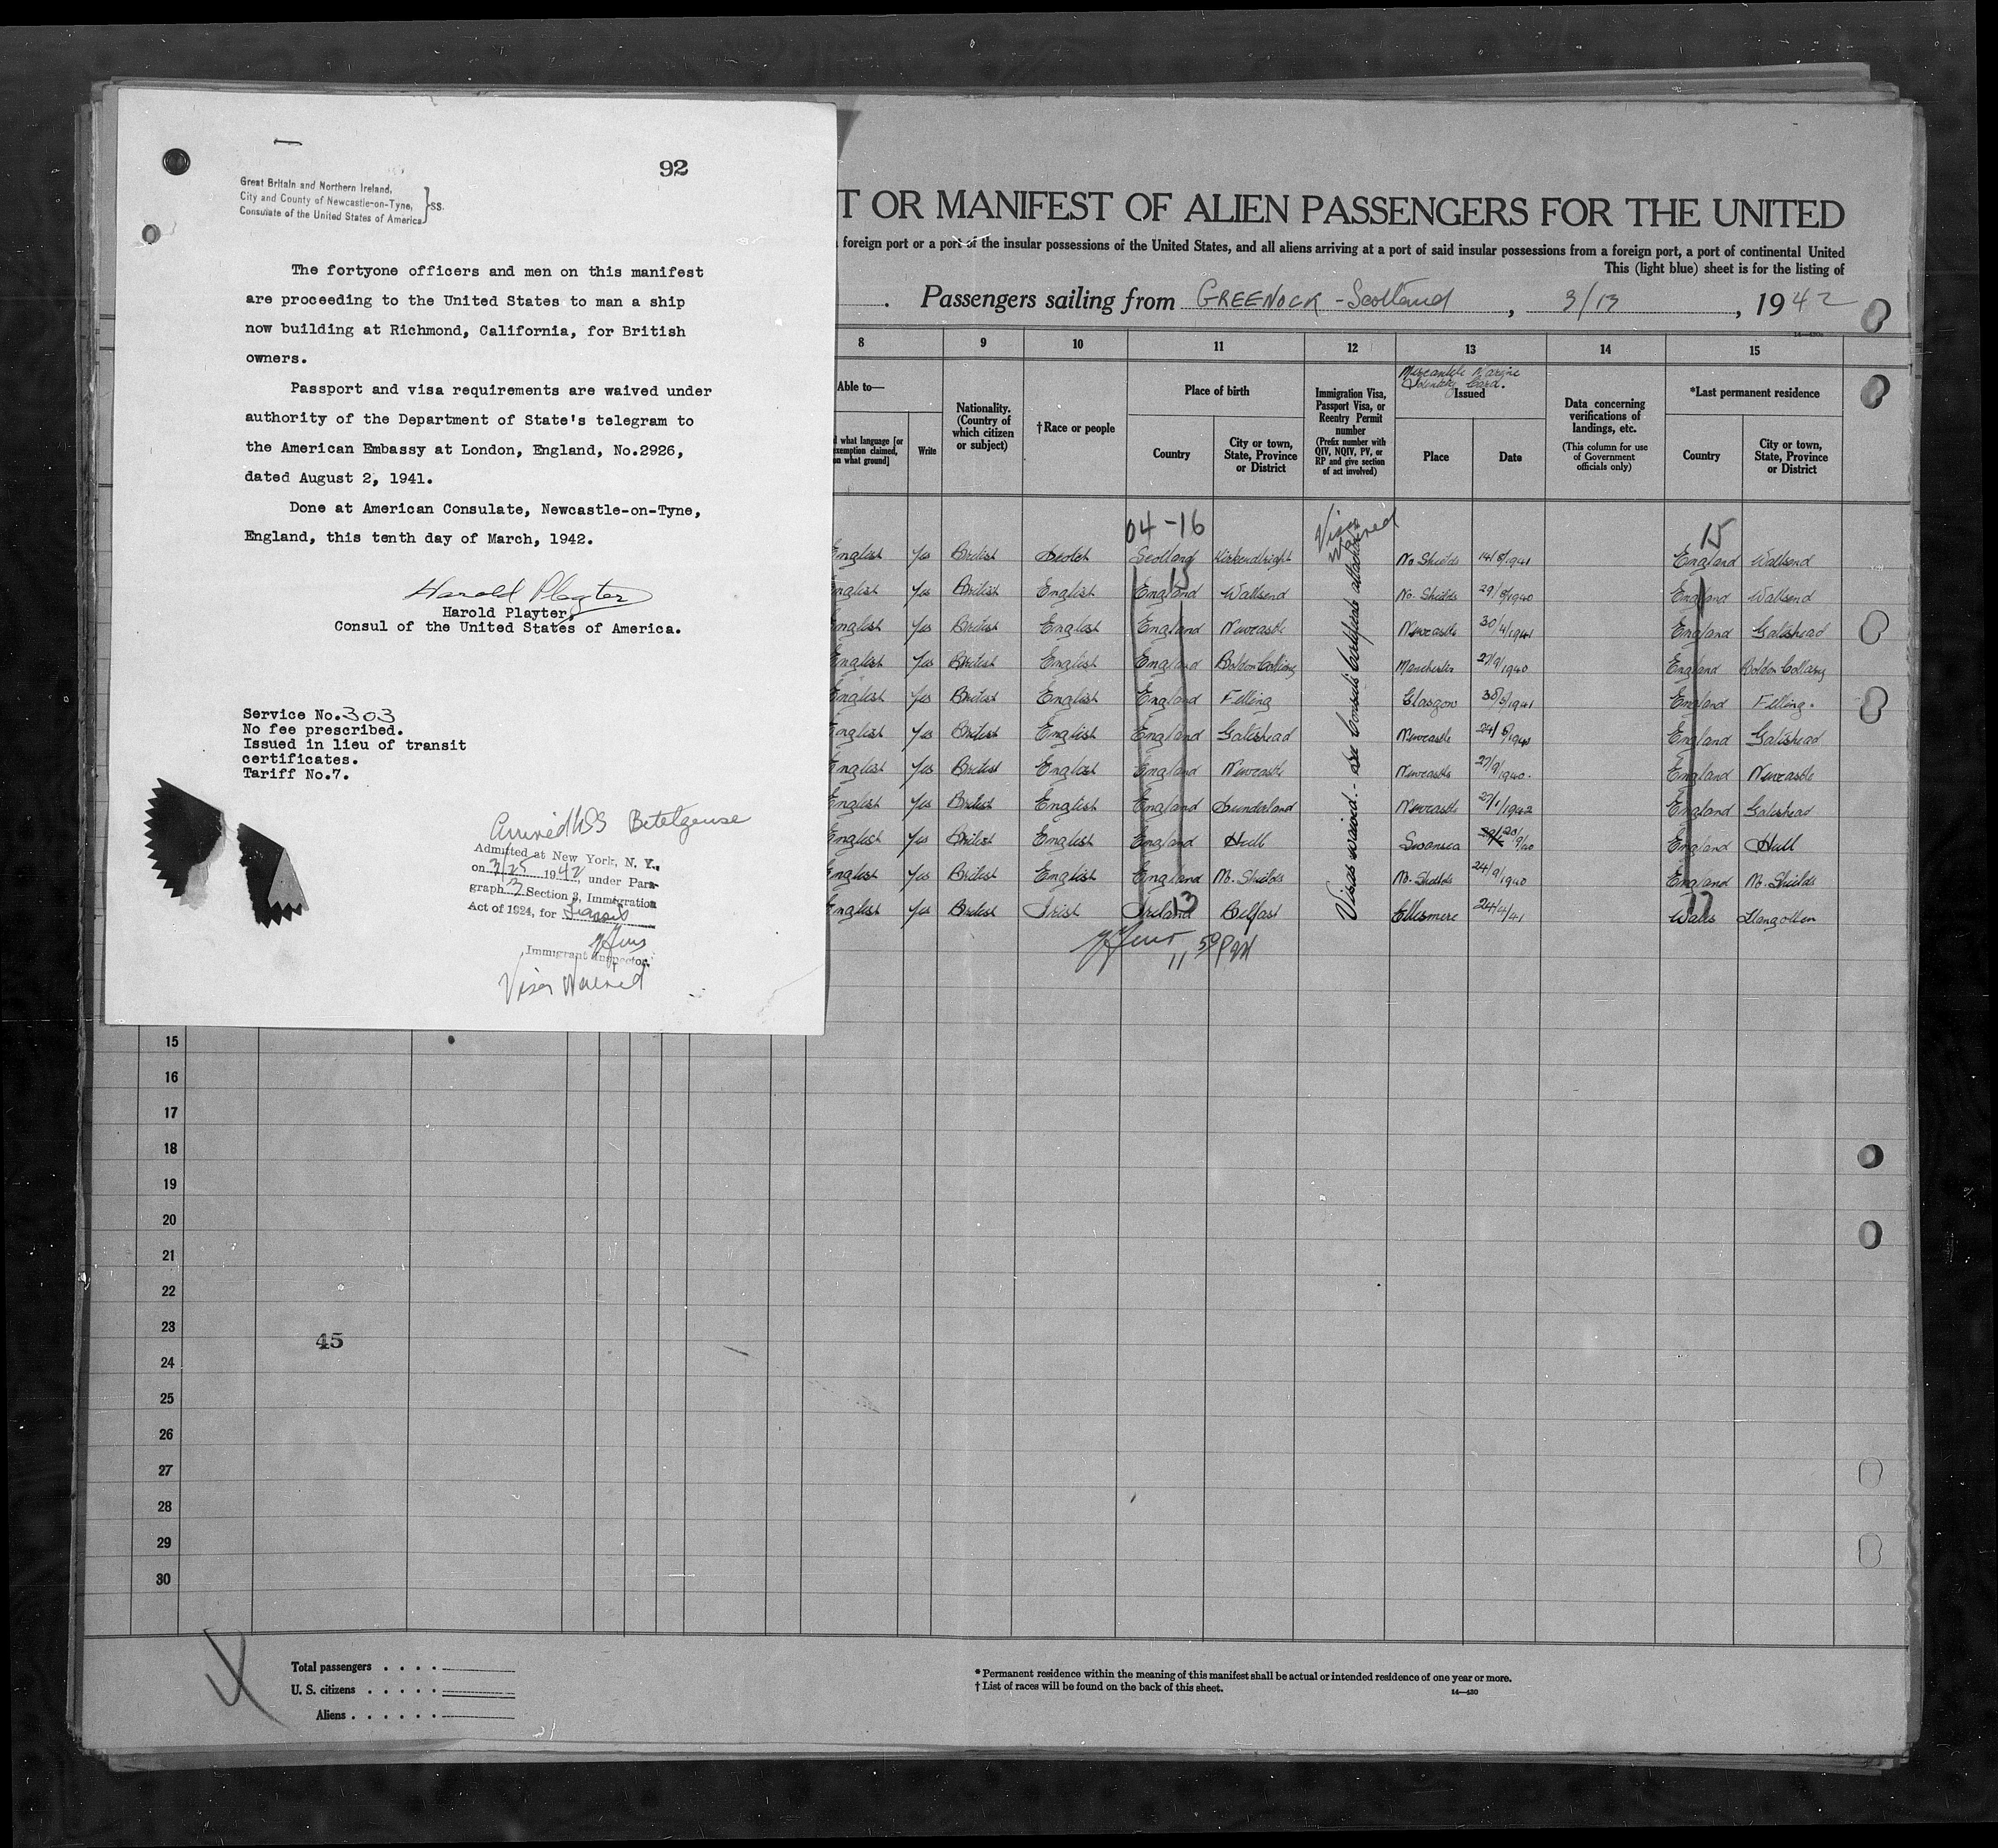 92
Great Britain and Northern Ireland,
City and County of Newcastle-on-Tyne, }SS.
Consulate of the United States of America
The fortyone officers and men on this manifest
are proceeding to the United States to man a ship
now building at Richmond, California, for British
owners.
Passport and visa requirements are waived under
authority of the Department of State's telegram to
the American Embassy at London, England, No.2926,
dated August 2, 1941.
Done at American Consulate, Newcastle-on-Tyne,
England, this tenth day of March, 1942.
Harold Playter
Harold Playter,
Consul of the United States of America.
Service No.303
No fee prescribed.
Issued in lieu of transit
certificates.
Tariff No.7.
Arrived USS Betelgeuse
Admitted at New York, N. Y.,
on 3/25 1942, under Para-
graph 3 Section 3, Immigration
Act of 1924, for
Immigrant Inspector.
Visa Waived
T OR MANIFEST OF ALIEN PASSENGERS FOR THE UNITED
foreign port or a port of the insular possessions of the United States, and all aliens arriving at a port of said insular possessions from a foreign port, a port of continental United
This (light blue) sheet is for the listing of
Passengers sailing from GREENOCK - Scotland, 3/13, 1942
14—430a
8 9 10 11 12 13 14 15
Able to—
what language [or
exemption claimed,
on what ground]
Write
Nationality.
(Country of
which citizen
or subject)
†Race or people
Place of birth
Country
City or town,
State, Province
or District
Immigration Visa,
Passport Visa, or
Reentry Permit
number
(Prefix number with
QIV, NQIV, PV, or
RP and give section
of act involved)
Mercantile Marine
Identity Card.
Issued
Place
Date
Data concerning
verifications of
landings, etc.
(This column for use
of Government
officials only)
*Last permanent residence
Country
City or town,
State, Province
or District
04-16 Visa Waived 15
Visas waived. - see Consul's Certificate attached
English Yes British Scotch Scotland Kirkcudbright No Shields 14/8/1941 England Wallsend
English Yes British English England Wallsend No. Shields 29/8/1940 England Wallsend
15
English Yes British English England Newcastle Newcastle 30/4/1941 England Gateshead
English Yes British English England Boldon Colliery Manchester 27/9/1940 England Boldon Colliery
English Yes British English England Felling Glasgow England Felling.
English Yes British English England Gateshead Newcastle England Gateshead
English Yes British English England Newcastle Newcastle 27/9/1940. England Newcastle
English Yes British English England Sunderland Newcastle 27/1/1942 England Gateshead
English Yes British English England Hull Swansea 20/9/40 England Hull
English Yes British English England No. Shields No. Shields 24/9/1940 England No. Shields
English Yes British Irish Ireland Belfast Ellesmere 24/4/41 Wales Llangollen
13 17
11 59 PM
15
16
17
18
19
20
21
22
23
45
24
25
26
27
28
29
30
Total passengers . . . .
U. S. citizens . . . . .
Aliens . . . . . .
* Permanent residence within the meaning of this manifest shall be actual or intended residence of one year or more.
† List of races will be found on the back of this sheet.
14—430